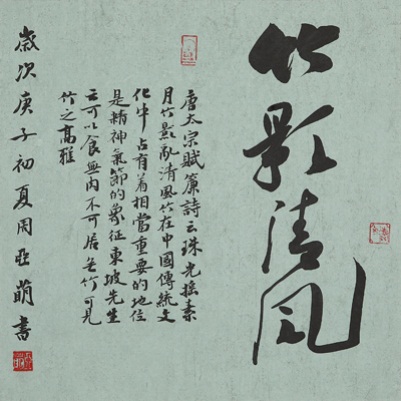 竹影清風
唐太宗賦簾詩云珠光摇素
月竹影亂清風竹在中國傳統文
化中占有着相當重要的地位
是精神氣節的象征東坡先生
云可以食無肉不可居無竹可見
竹之高雅
歲次庚子初夏周亚萌書